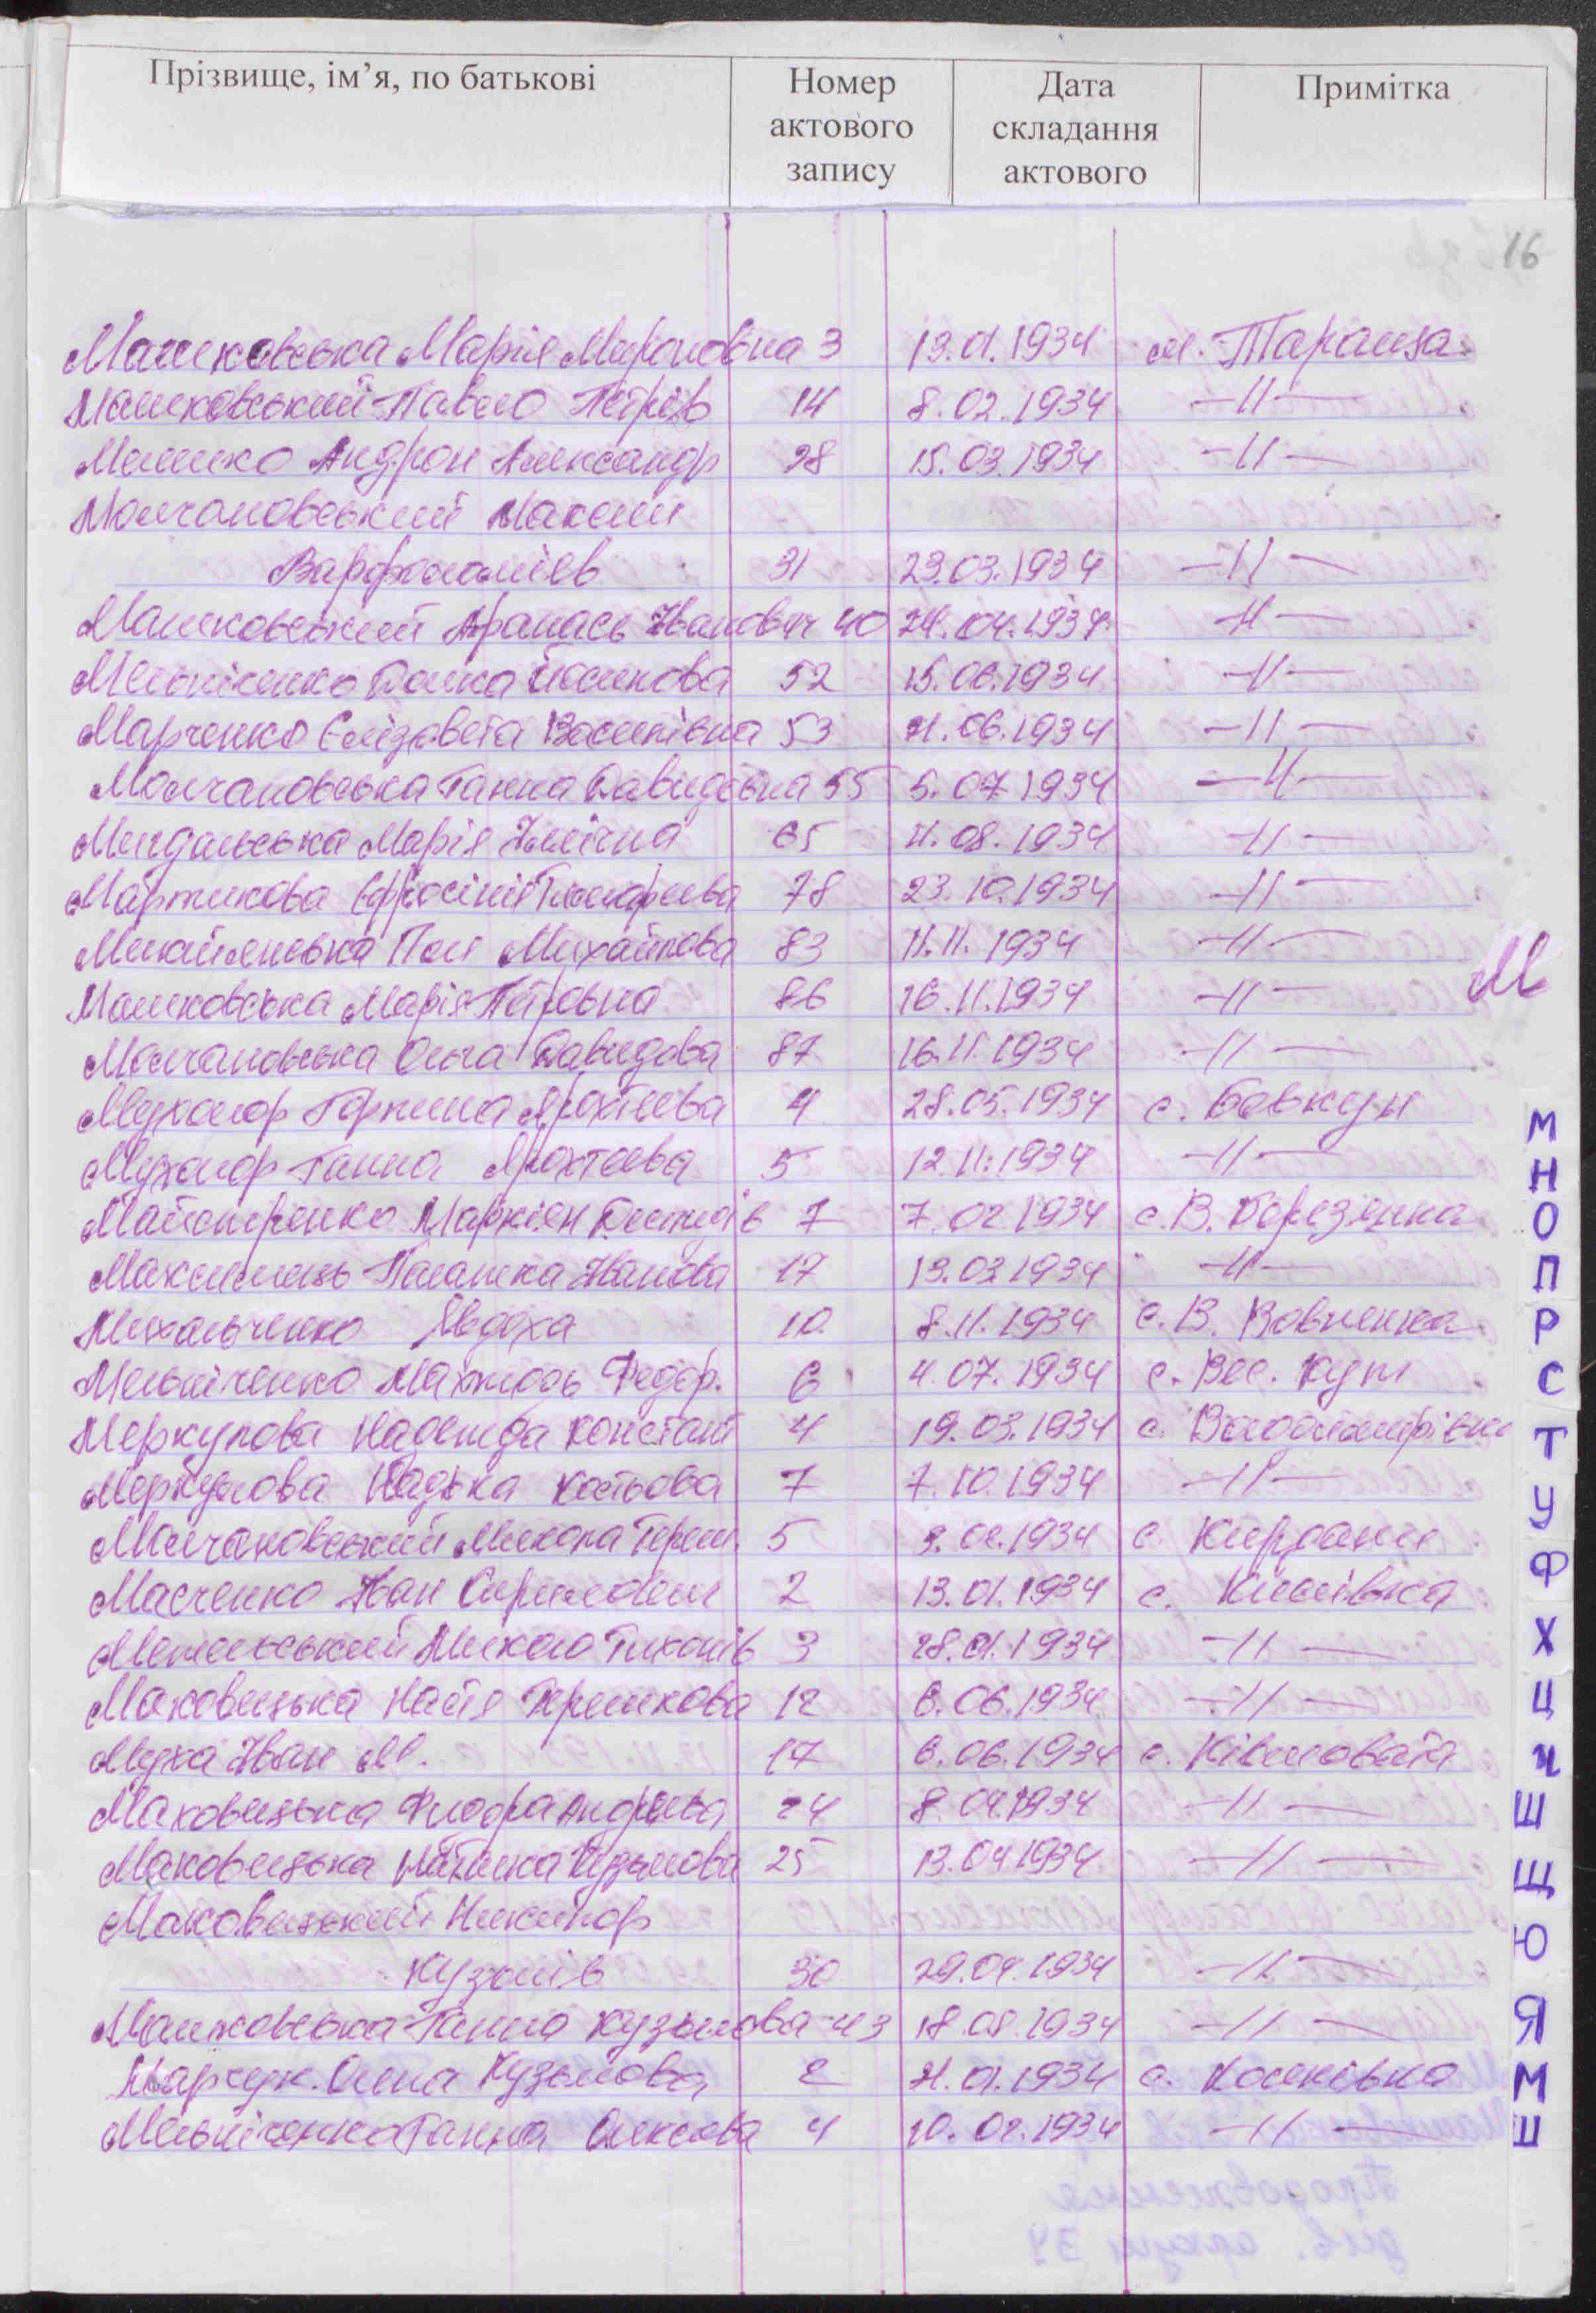 Прізвище, ім’я, по батькові Номер актового запису Дата складання актового Примітка
16
Машковська Марія Мироновна 3 13.01.1934 м. Тараща
Машковський Павло Петрів 14 8.02.1934 —//—
Машко Андрон Александр 28 15.03.1934 —//—
Молчановський Максим
Варфоломіїв 31 23.03.1934 —//—
Машковський Афанась Іванович 40 24.04.1934 —//—
Мельніченко Домка 52 15.06.1934 —//—
Марченко Єлізавета Василівна 53 21.06.1934 —//—
Молчановська Ганна Давидовна 55 5.07.1934 —//—
Мигдальська Марія Іллічна 65 4.08.1934 —//—
Мартикова Єфросінія 78 23.10.1934 —//—
Поля Михайлова 83 11.11.1934 —//—
Машковська Марія Петровна 86 16.11.1934 —//—
Молчановська Ольга Давидова 87 16.11.1934 —//—
М
Мухомор Горпина 4 28.05.1934 с. Бовкун
Мухомор Ганна 5 12.11.1934 —//—
Майстренко Маркіян Демидів 7 7.02.1934 с. В. Березянка
Максимець Палашка Іванова 17 13.03.1934 —//—
Михальченко Явдоха 10 8.11.1934 с. В. Вовнянка
Мельніченко Федор. 6 4.07.1934 с. Вес. Кут
Меркулова Надежда Констант 4 19.03.1934 с. Володимирівка
Меркулова Надька Костьова 7 7.10.1934 —//—
Молчановський Микола Тереш. 5 3.02.1934 с. Кирдани
Масченко Іван 2 13.01.1934 с. Кислівка
Микола Тихонів 3 28.01.1934 —//—
Маковицька Настя Терешкова 12 6.06.1934 —//—
Муха Іван М. 17 6.06.1934 с. Ківшовата
Маковицька Андрієва 24 8.04.1934 —//—
Маковицька Наталка Кузьмова 25 13.04.1934 —//—
Маковицький Никифор
Кузьмів 30 29.04.1934 —//—
Машковська Ганна Кузьмова 43 18.08.1934 —//—
Марчук Олена Кузьмова 2 21.01.1934 с. Косяківка
Мельніченко Ганна Олексова 4 10.02.1934 —//—
М
Н
О
П
Р
С
Т
У
Ф
Х
Ц
Ч
Ш
Щ
Ю
Я
М
Ш